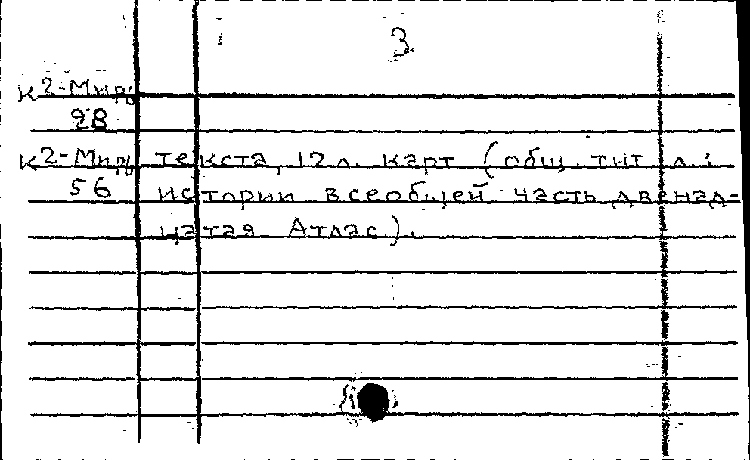 3.
к2-Мир
28
к2-Мир текста, 12 л. карт (общ. тит. л.:
56 истории всеобщей часть двенад-
цатая Атлас).